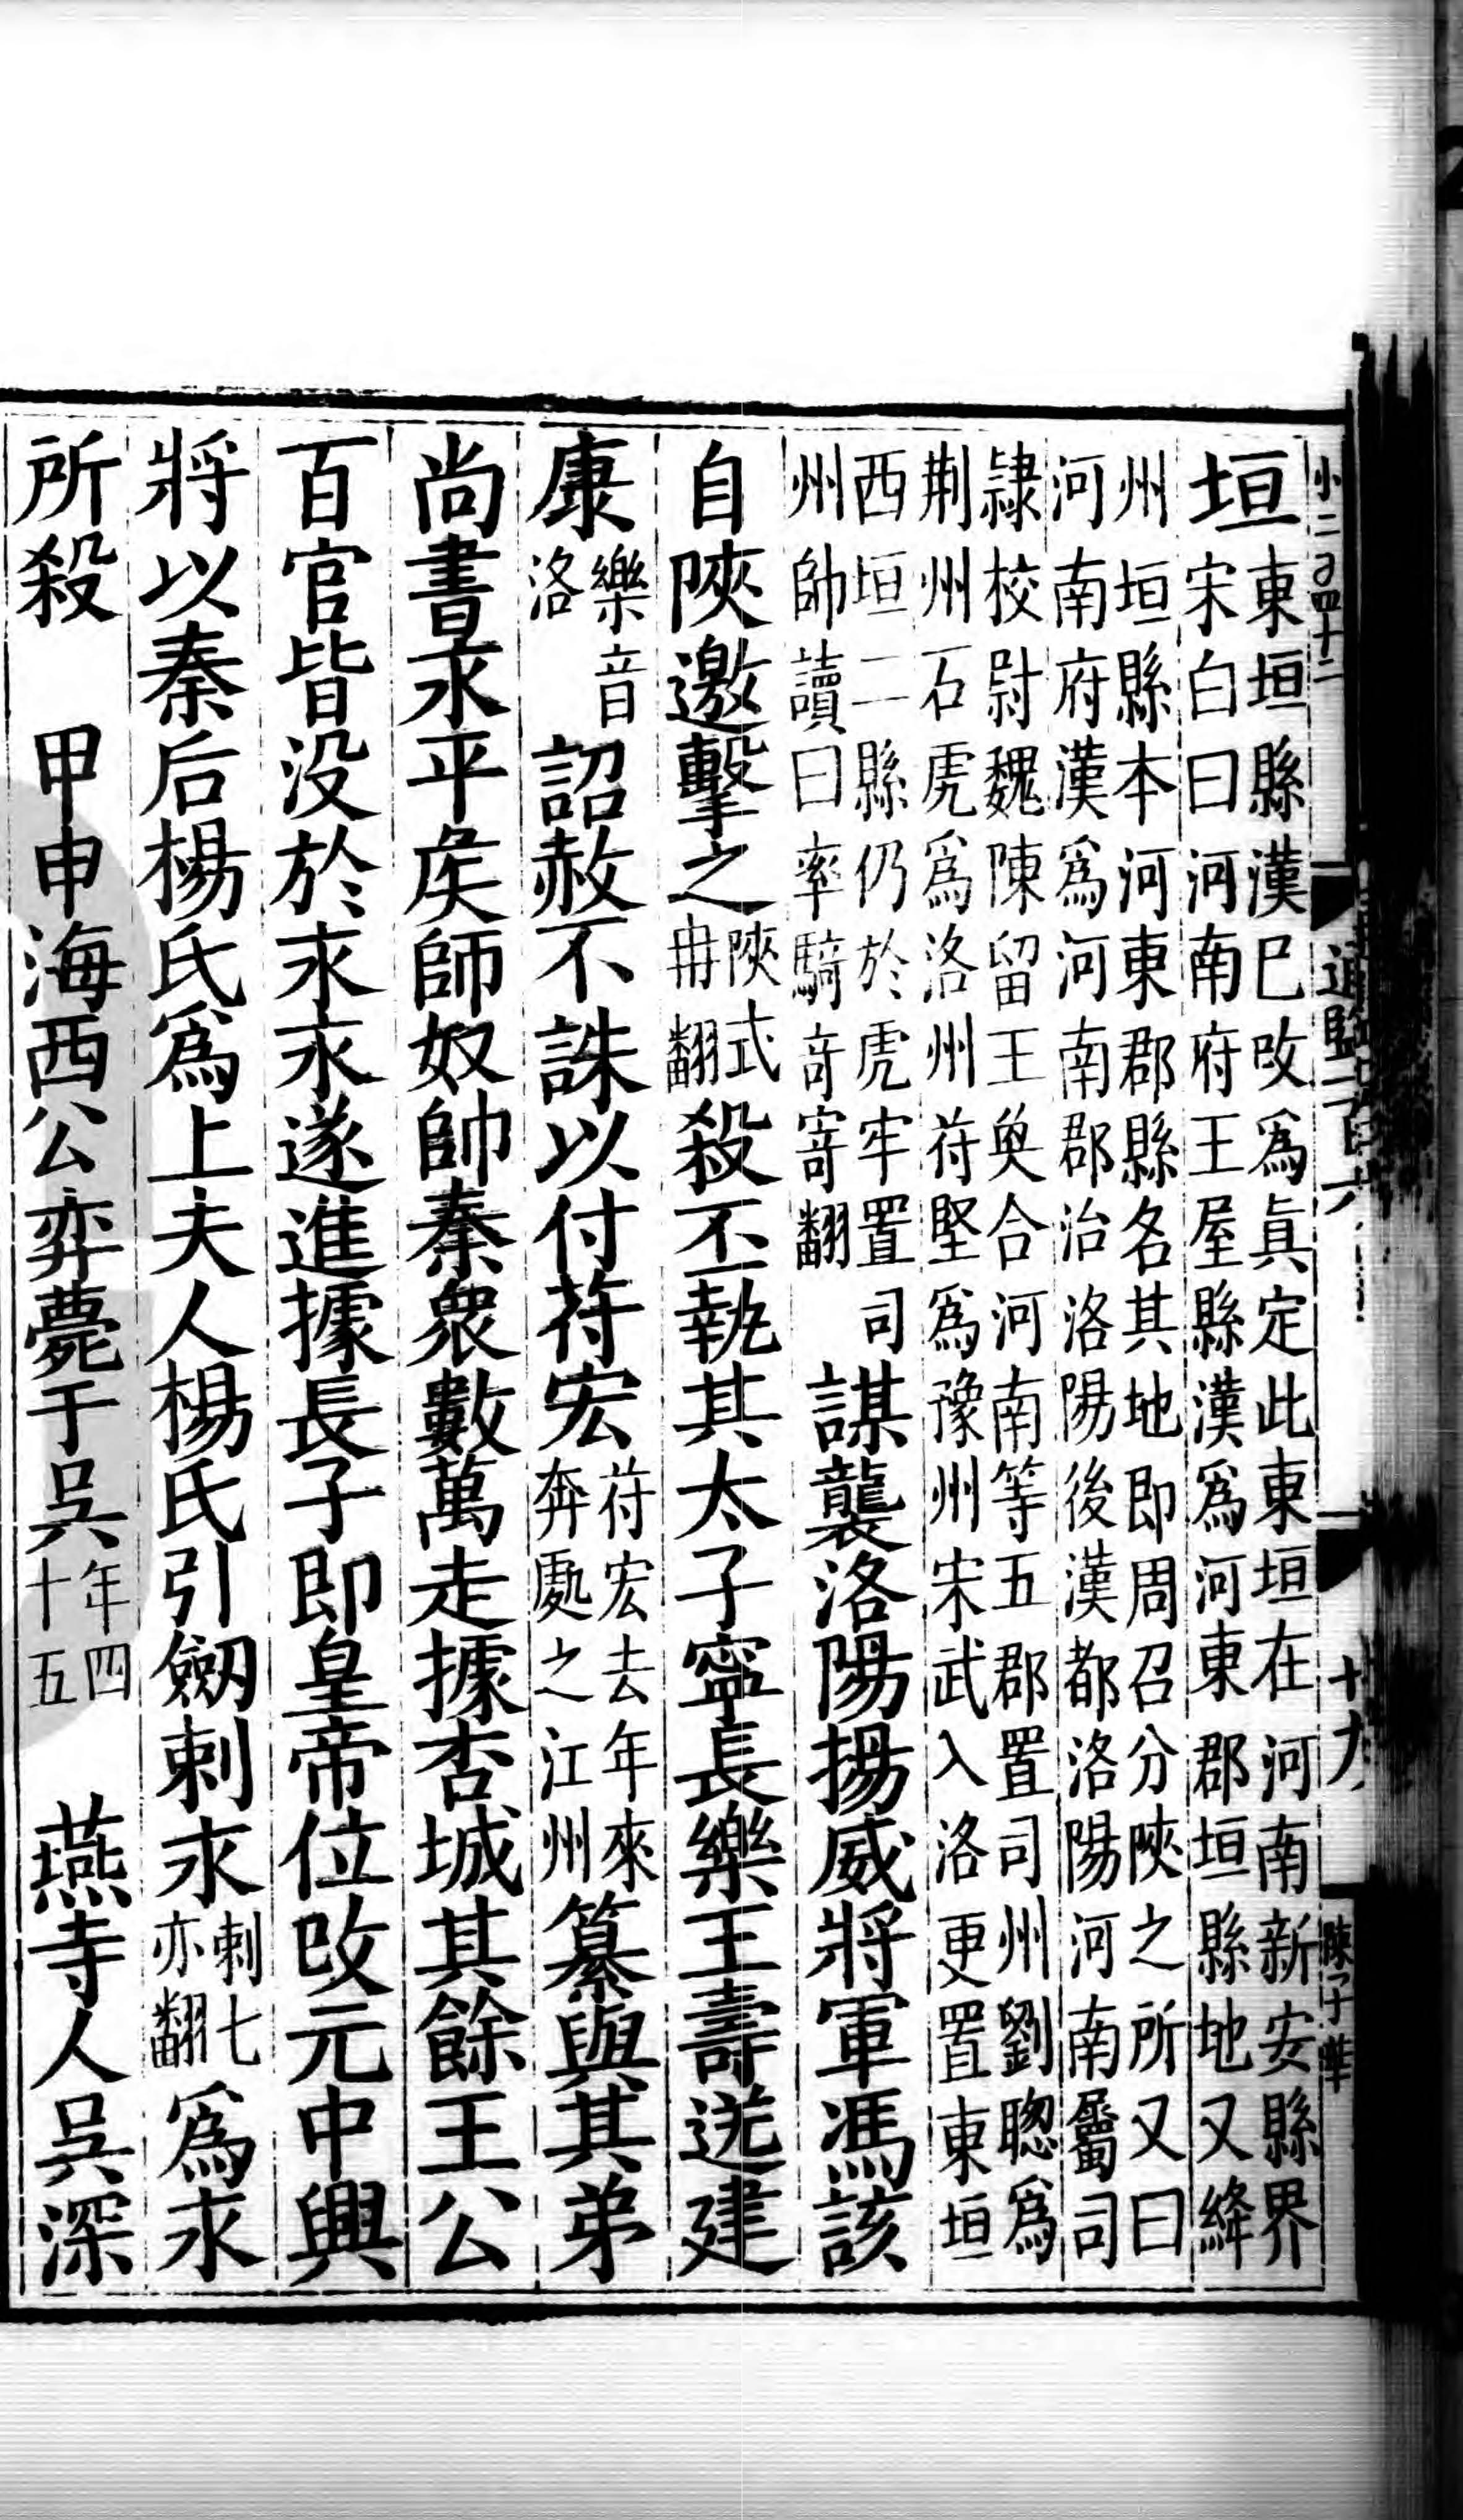 小二百四十二 通鑑一百六 十九 陳子華
垣東垣縣漢巳攺爲眞定此東垣在河南新安縣界宋白曰河南府王屋縣漢爲河東郡垣縣地又絳
州垣縣本河東郡縣名其地即周召分陜之所又曰河南府漢爲河南郡治洛陽後漢都洛陽河南屬司
隷校尉魏陳留王奐合河南等五郡置司州劉聦爲荆州石虎爲洛州苻堅爲豫州宋武入洛更置東垣
西垣二縣仍於虎牢置司州帥讀曰率騎竒寄翻謀襲洛陽揚威將軍馮該
自陜邀擊之陜式冉翻殺丕執其太子寧長樂王壽送建
康樂音洛詔赦不誅以付苻宏苻宏去年來奔處之江州纂與其弟
尚書永平矦師奴帥秦衆數萬走據杏城其餘王公
百官皆没於永永遂進據長子即皇帝位攺元中興
將以秦后楊氏爲上夫人楊氏引劒刺永刺七亦翻爲永
所殺 甲申海西公弈薨于吳年四十五 燕寺人吳深